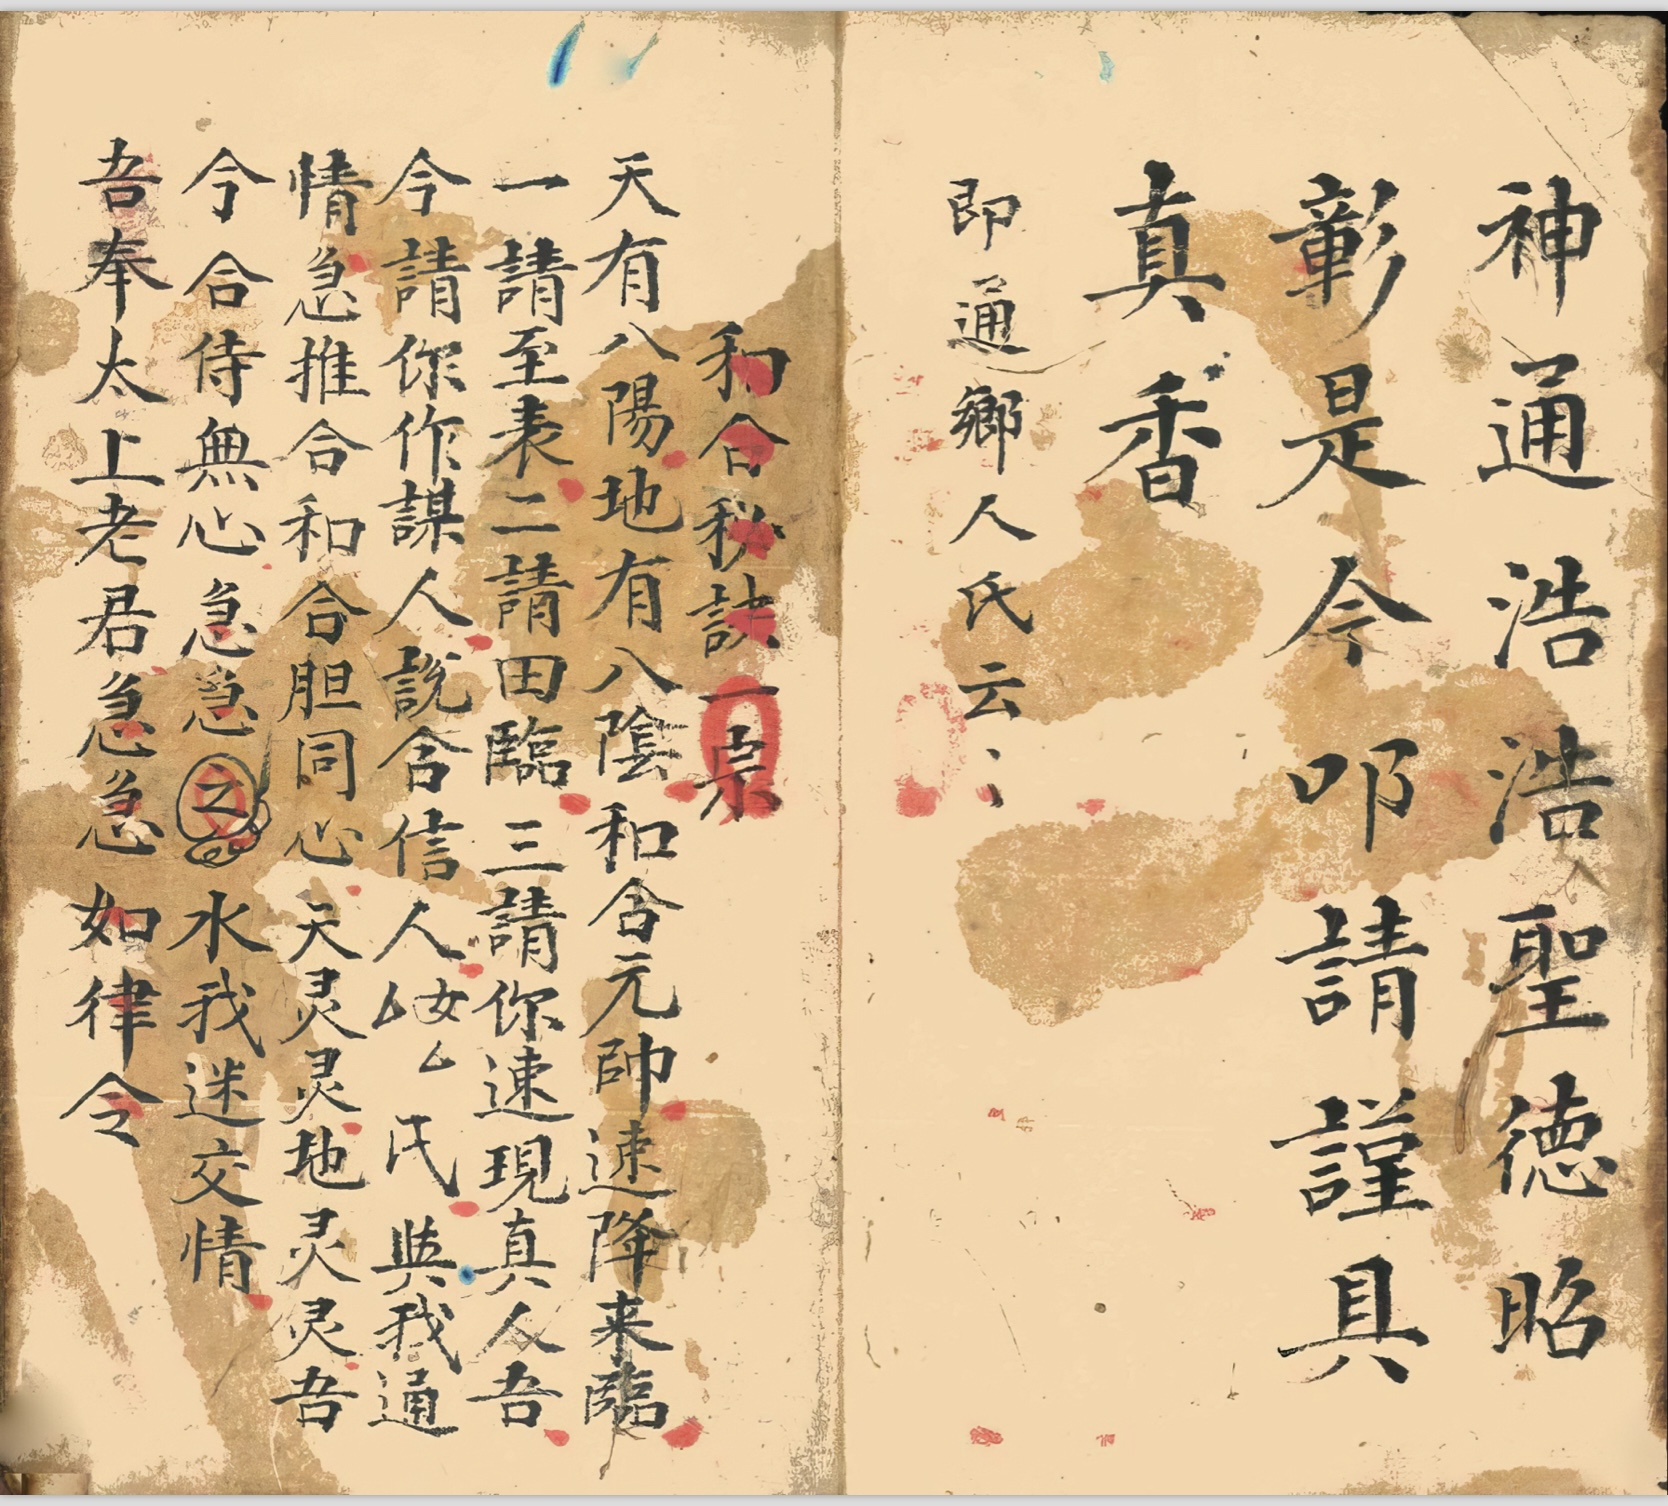 神通浩浩聖德昭
彰是今叩請謹具
真香
即通鄉人氏云〻
和合秘訣一宗
天有八陽地有八陰和合元帥速降来臨
一請至表二請田臨三請你速現真人吾
今請你作謀人說合信人厶女厶氏與我通
情急推合和合胆同心天灵灵地灵灵吾
今合侍無心急急之水我迷交情
吾奉太上老君急急如律令